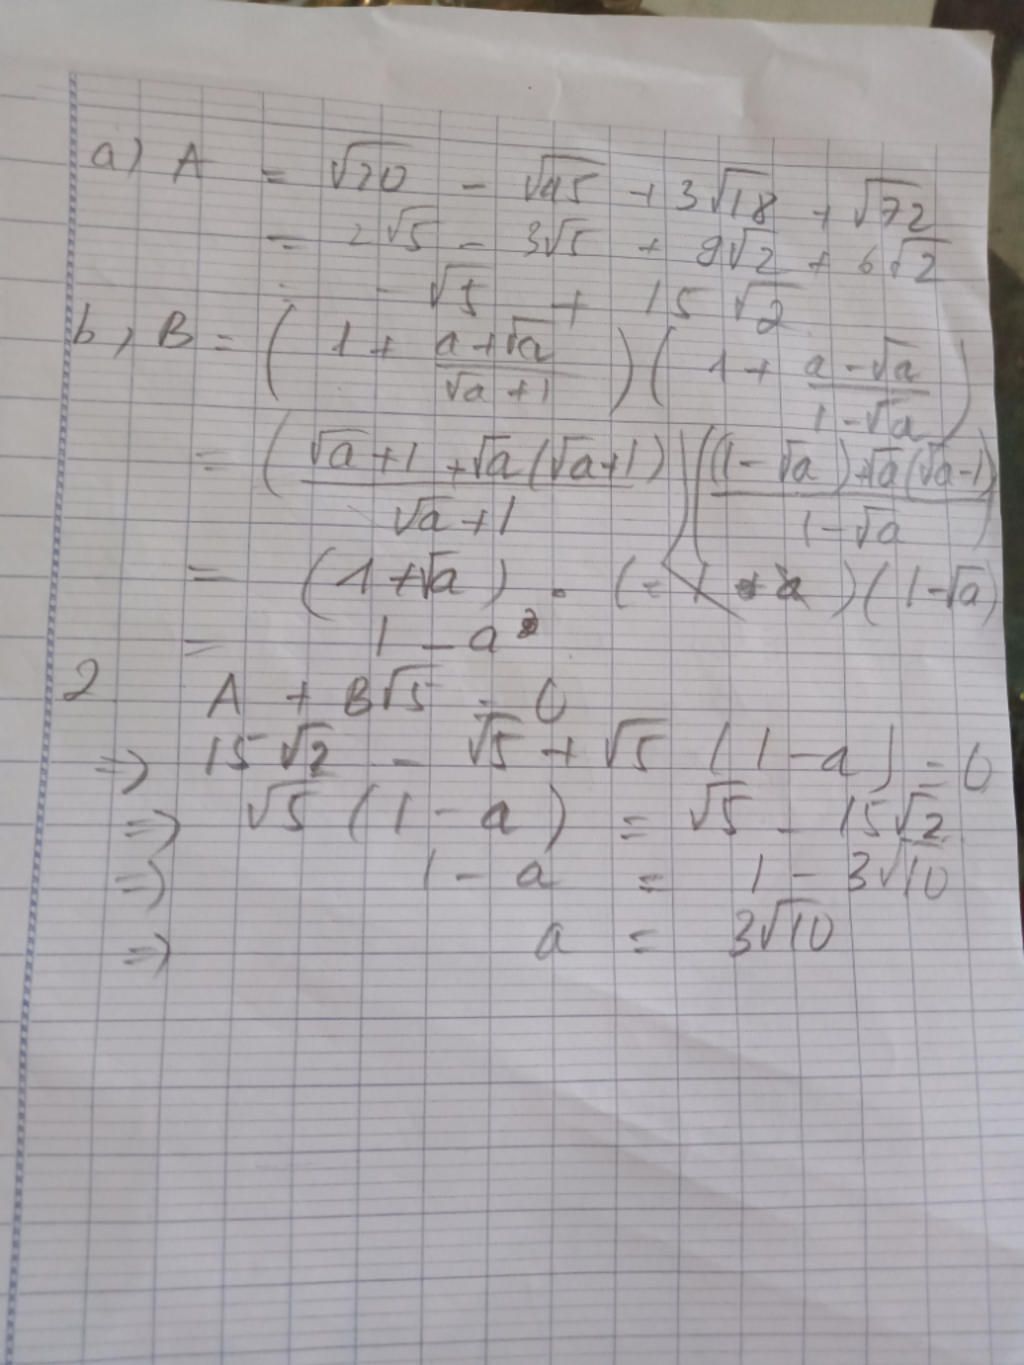 a) A = √20 - √45 + 3√18 + √72
= 2√5 - 3√5 + 9√2 + 6√2
= -√5 + 15√2
b, B = (1 + (a+√a)/(√a+1)) (1 + (a-√a)/(1-√a))
= ((√a+1+√a(√a+1))/(√a+1)) (((1-√a)+√a(√a-1))/(1-√a))
= (1+√a) . ( ) (1-√a)
= 1 - a
2 A + B√5 = 0
=> 15√2 - √5 + √5 (1-a) = 0
=> √5 (1-a) = √5 - 15√2
=> 1 - a = 1 - 3√10
=> a = 3√10